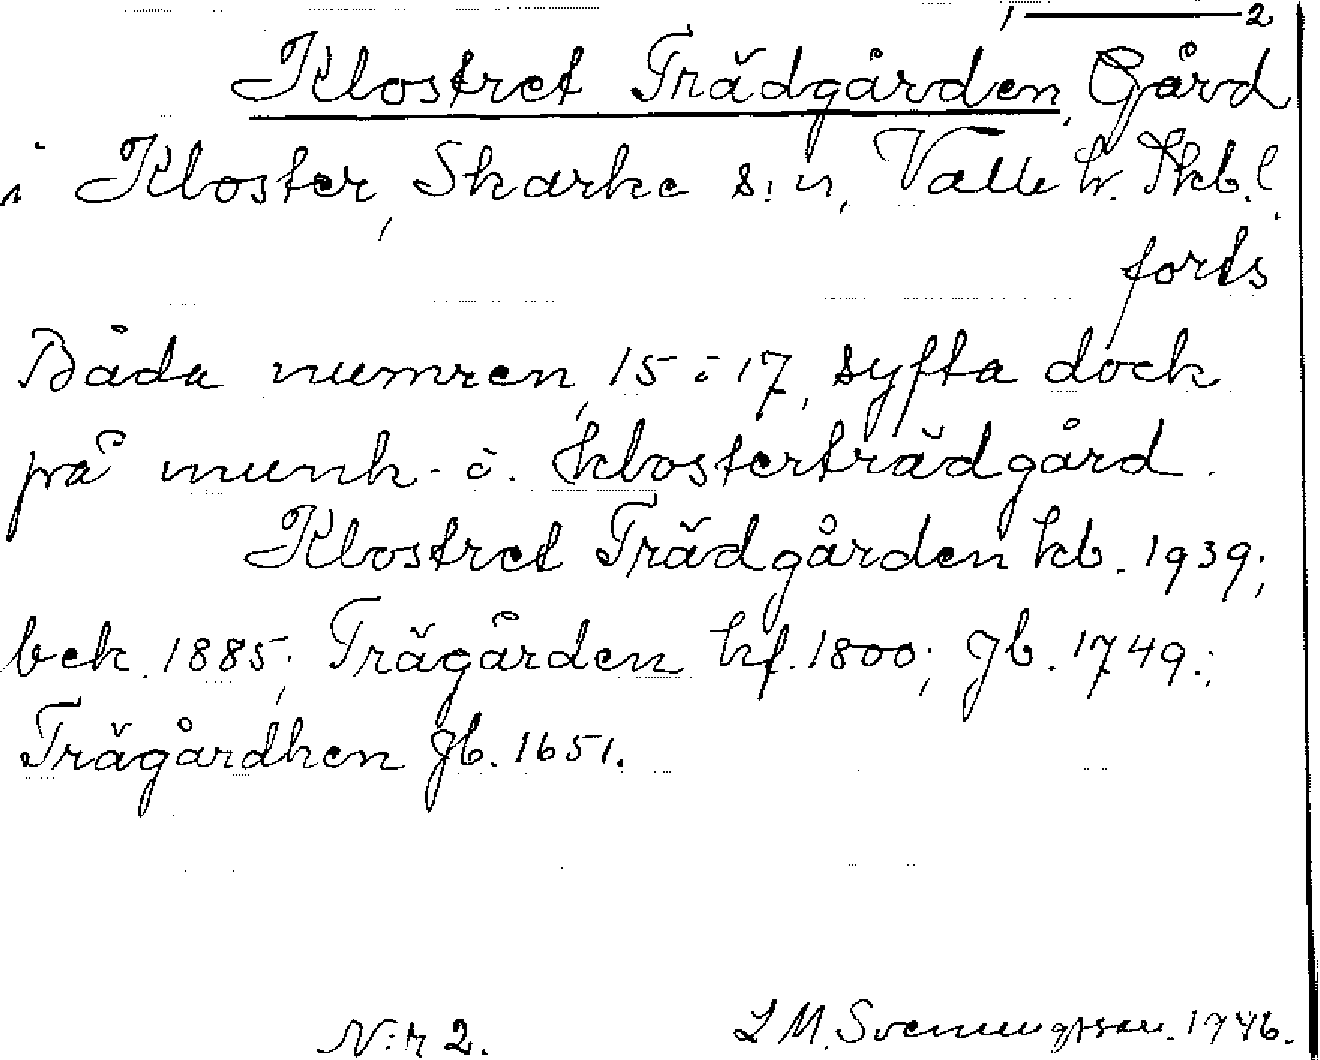 1 — 2
Klostret Trädgården, Gård
i Kloster, Skarke s:n, Valle hr. Skb.l.
forts
Båda numren, 15 o 17, syfta dock
på munk- o. klosterträdgård.
Klostret Trädgården kb. 1939;
bek. 1885; Trägården hf. 1800; Jb. 1749.;
Trägårdhen Jb. 1651.
N:r 2.
L M. Svenungsson. 1946.